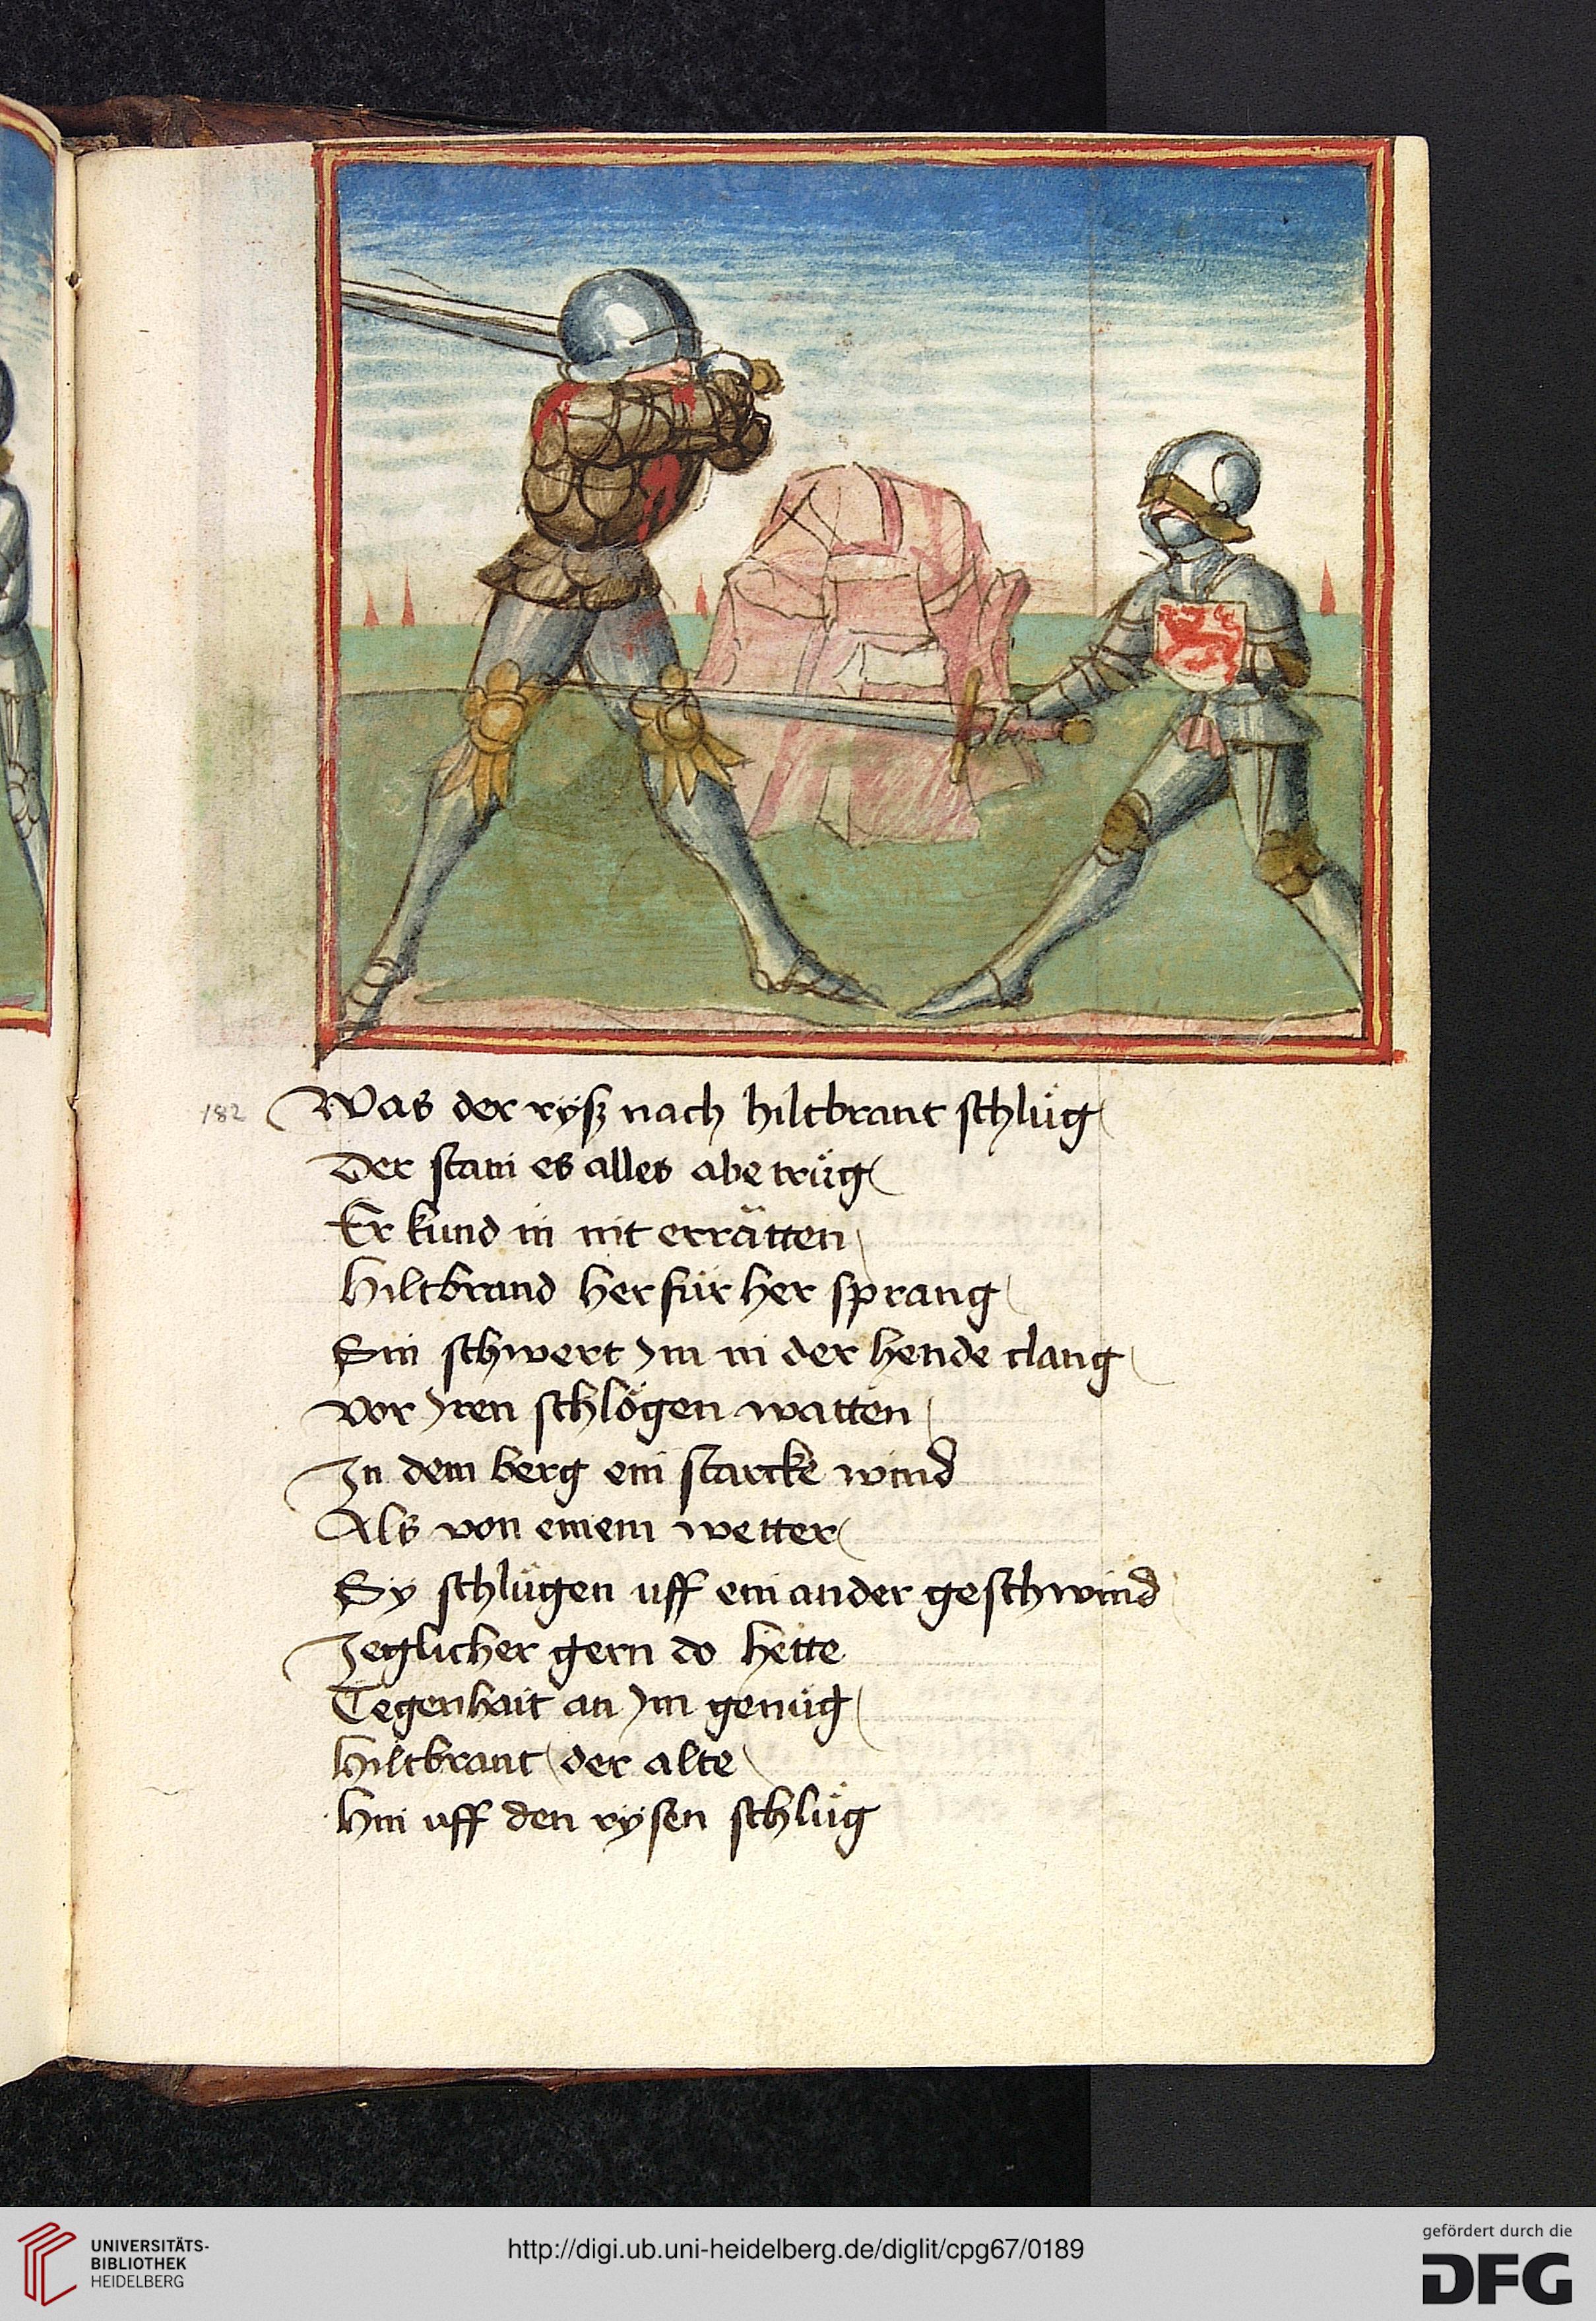 182 Was der ryß nach hiltbrant schlůg
Der stain es alles abe trůg
Er kund in nit errätten
Hiltbrand her fúr her sprang
Sin schwert ym in der hende clang
Vor yren schlögen watten
In dem berg ein starcke wind
Als von einem wetter
Sy schlůgen uff ein ander geschwind
Jeglicher gern do hette
Tegenhait an ym genůg
Hiltbrant der alte
Hin uff den rysen schlůg
UNIVERSITÄTS-
BIBLIOTHEK
HEIDELBERG
http://digi.ub.uni-heidelberg.de/diglit/cpg67/0189
gefördert durch die
DFG